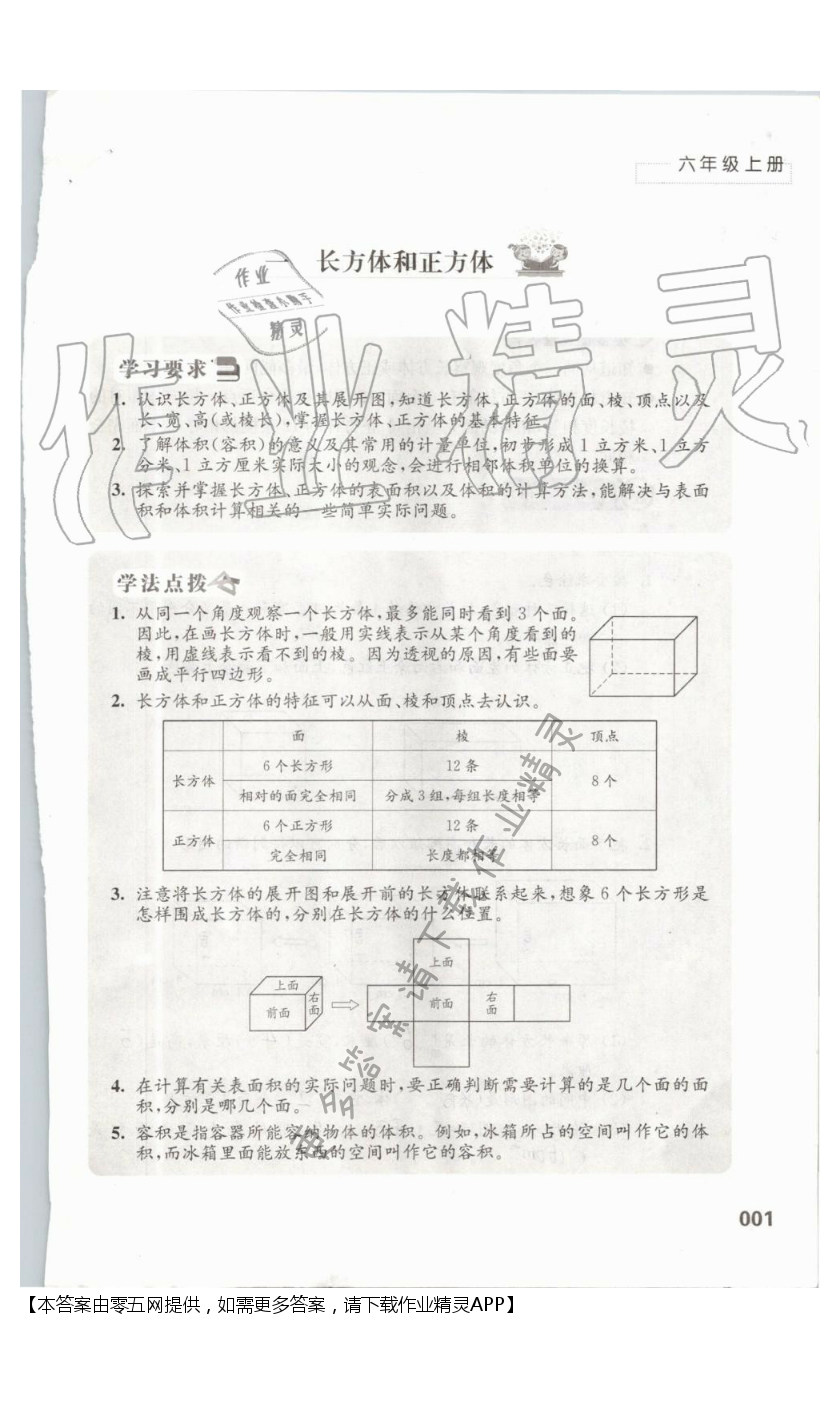 六年级上册
一 长方体和正方体
作业
作业检查小助手
精灵
作业精灵
学习要求
1. 认识长方体、正方体及其展开图，知道长方体、正方体的面、棱、顶点以及
长、宽、高(或棱长)，掌握长方体、正方体的基本特征。
2. 了解体积(容积)的意义及其常用的计量单位，初步形成1立方米、1立方
分米、1立方厘米实际大小的观念，会进行相邻体积单位的换算。
3. 探索并掌握长方体、正方体的表面积以及体积的计算方法，能解决与表面
积和体积计算相关的一些简单实际问题。
学法点拨
1. 从同一个角度观察一个长方体，最多能同时看到3个面。
因此，在画长方体时，一般用实线表示从某个角度看到的
棱，用虚线表示看不到的棱。因为透视的原因，有些面要
画成平行四边形。
2. 长方体和正方体的特征可以从面、棱和顶点去认识。
面 棱 顶点
长方体 6个长方形 12条 8个
相对的面完全相同 分成3组，每组长度相等
正方体 6个正方形 12条 8个
完全相同 长度都相等
3. 注意将长方体的展开图和展开前的长方体联系起来，想象6个长方形是
怎样围成长方体的，分别在长方体的什么位置。
上面
前面
右面
上面
前面
右面
4. 在计算有关表面积的实际问题时，要正确判断需要计算的是几个面的面
积，分别是哪几个面。
5. 容积是指容器所能容纳物体的体积。例如，冰箱所占的空间叫作它的体
积，而冰箱里面能放东西的空间叫作它的容积。
更多答案请下载作业精灵
001
【本答案由零五网提供，如需更多答案，请下载作业精灵APP】